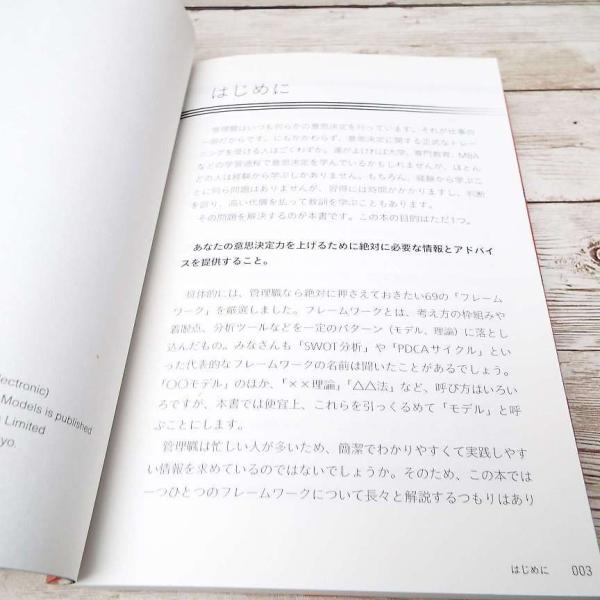 lectronic)
Models is published
Limited
yo.
はじめに
管理職はいつも何らかの意思決定を行っています。それが仕事の
一部だからです。にもかかわらず、意思決定に関する正式なトレー
ニングを受ける人はごくわずか。運がよければ大学、専門教育、MBA
などの学習過程で意思決定を学んでいるかもしれませんが、ほとん
どの人は経験から学ぶしかありません。もちろん、経験から学ぶこ
とに何ら問題はありませんが、習得には時間がかかりますし、判断
を誤り、高い代償を払って教訓を学ぶこともあります。
その問題を解決するのが本書です。この本の目的はただ1つ。
あなたの意思決定力を上げるために絶対に必要な情報とアドバイ
スを提供すること。
具体的には、管理職なら絶対に押さえておきたい69の「フレーム
ワーク」を厳選しました。フレームワークとは、考え方の枠組みや
着眼点、分析ツールなどを一定のパターン（モデル、理論）に落とし
込んだもの。みなさんも「SWOT分析」や「PDCAサイクル」とい
った代表的なフレームワークの名前は聞いたことがあるでしょう。
「〇〇モデル」のほか、「××理論」「△△法」など、呼び方はいろい
ろですが、本書では便宜上、これらを引っくるめて「モデル」と呼
ぶことにします。
管理職は忙しい人が多いため、簡潔でわかりやすくて実践しやす
い情報を求めているのではないでしょうか。そのため、この本では
一つひとつのフレームワークについて長々と解説するつもりはあり
はじめに 003